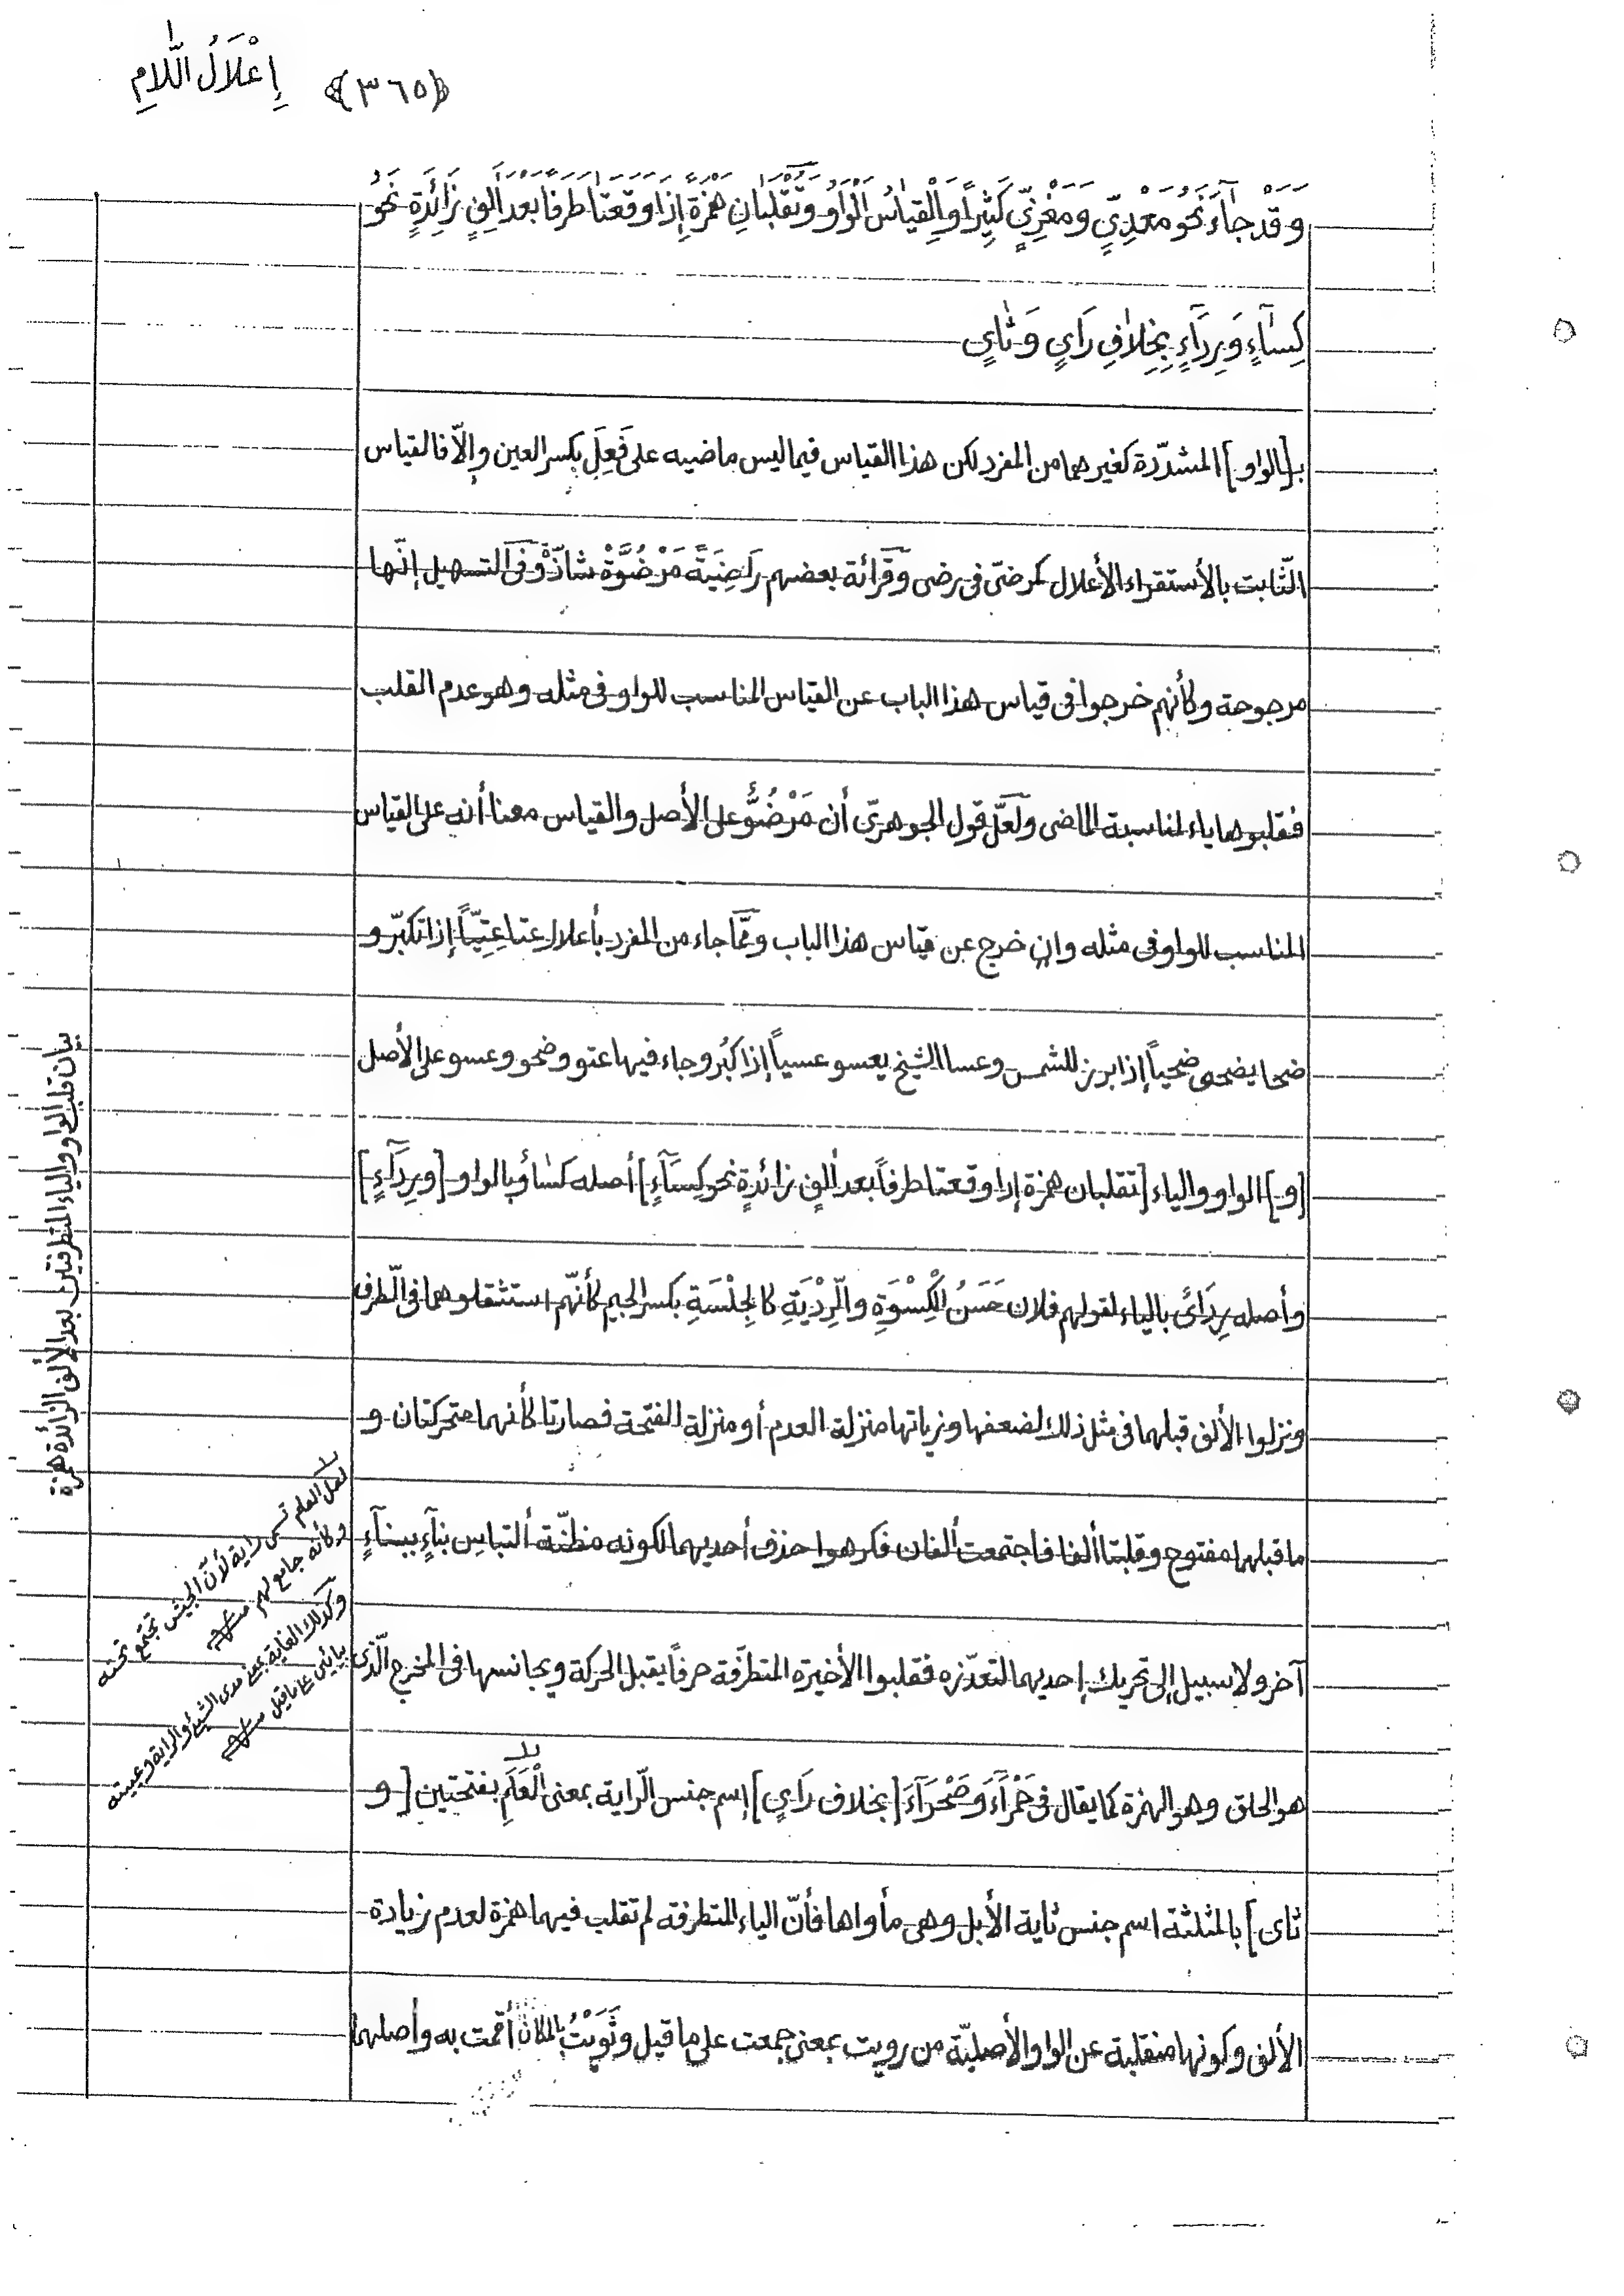 إِعْلَالُ اللَّامِ ﴿٣٦٥﴾
وَقَدْ جَاءَ نَحْوُ مَعْدِيٍّ وَمَغْزِيٍّ كَثِيْرًا وَالْقِيَاسُ الْوَاوُ وَتُقْلَبَانِ هَمْزَةً إِذَا وَقَعَتَا طَرَفًا بَعْدَ أَلِفٍ زَائِدَةٍ نَحْوُ
كِسَاءٍ وَرِدَاءٍ بِخِلَافِ رَايٍ وَثَايٍ
بـ[الواو] المشدّدة كغيرهما من المفرد لكن هذا القياس فيما ليس ماضيه على فَعِلَ بكسر العين وإلّا فالقياس
الثّابت بالأستقراء الأعلال كمرضىّ فى رضى وقرائة بعضهم رَاضِيَةً مَرْضُوَّةْ شاذّة وفى التسهيل إنّها
مرجوحة وكأنهم خرجوا فى قياس هذا الباب عن القياس المناسب للواو فى مثله وهو عدم القلب
فقلبوها ياء لمناسبة الماضى ولعلّ قول الجوهرىّ أن مَرْضُوًّ على الأصل والقياس معنا أنه على القياس
المناسب للواو فى مثله وان خرج عن قياس هذا الباب وممّا جاء من المفرد بأعلال عتا عِتِيّاً إذا تكبّر و
ضحا يضحى ضحياً إذا برز للشمس وعسا الشيخ يعسو عسياً إذا كبُر وجاء فيها عتو وضحو وعسو على الأصل
[و] الواو والياء [تقلبان همزة إذا وقعتا طرفاً بعد ألفٍ زائدةٍ نحو كِسَآءٍ] أصله كساؤ بالواو [ورِدَآءٍ]
وأصله رِدَائ بالياء لقولهم فلان حَسَنُ الْكِسْوَةِ والرِّدْيَةِ كالجِلْسَةِ بكسر الجيم كأنّهم استثقلوهما فى الّطرف
ونزلوا الألف قبلهما فى مثل ذلك لضعفها وزياتها منزلة العدم أو منزلة الفتحة فصارتا كأنهما متحركتان و
ما قبلهما مفتوح وقلبتا ألفا فاجتمعت ألفان فكرهوا حذف أحديهما لكونه مظنّة ألتباس بناءٍ ببناءٍ
آخر ولا سبيل إلى تحريك إحديهما لتعذّره فقلبوا الأخيرة المتطرّفة حرفاً يقبل الحركة ويجانسها فى المخرج الّذى
هو الحلق وهو الهمزة كما يقال فى حَمْرَآءَ وَصَحْرَآءَ [بخلاف رَايٍ] إسم جنس الّراية بمعنى الْعَلَمِ بفتحتين [و
ثاى] بالمثلثة اسم جنس ثاية الأبل وهى مأواها فأنّ الياء المتطرفة لم تقلب فيهما همزة لعدم زيادة
الألف وكونها منقلبة عن الواو الأصليّة من رويت بمعنى جمعت على ما قيل وثَوَيْتُ بالمكان أقمت به وأصلهما
بيان قلب الواو والياء المتطرفتين بعد الألف الزائدة همزة
لعل العلم سمى راية لأنّ الجيش تجتمع تحته
وكأنه جامع لهم
وكذلك الغاية بمعنى مدى الشيئ والراية وعيبته
يائى على ما قيل